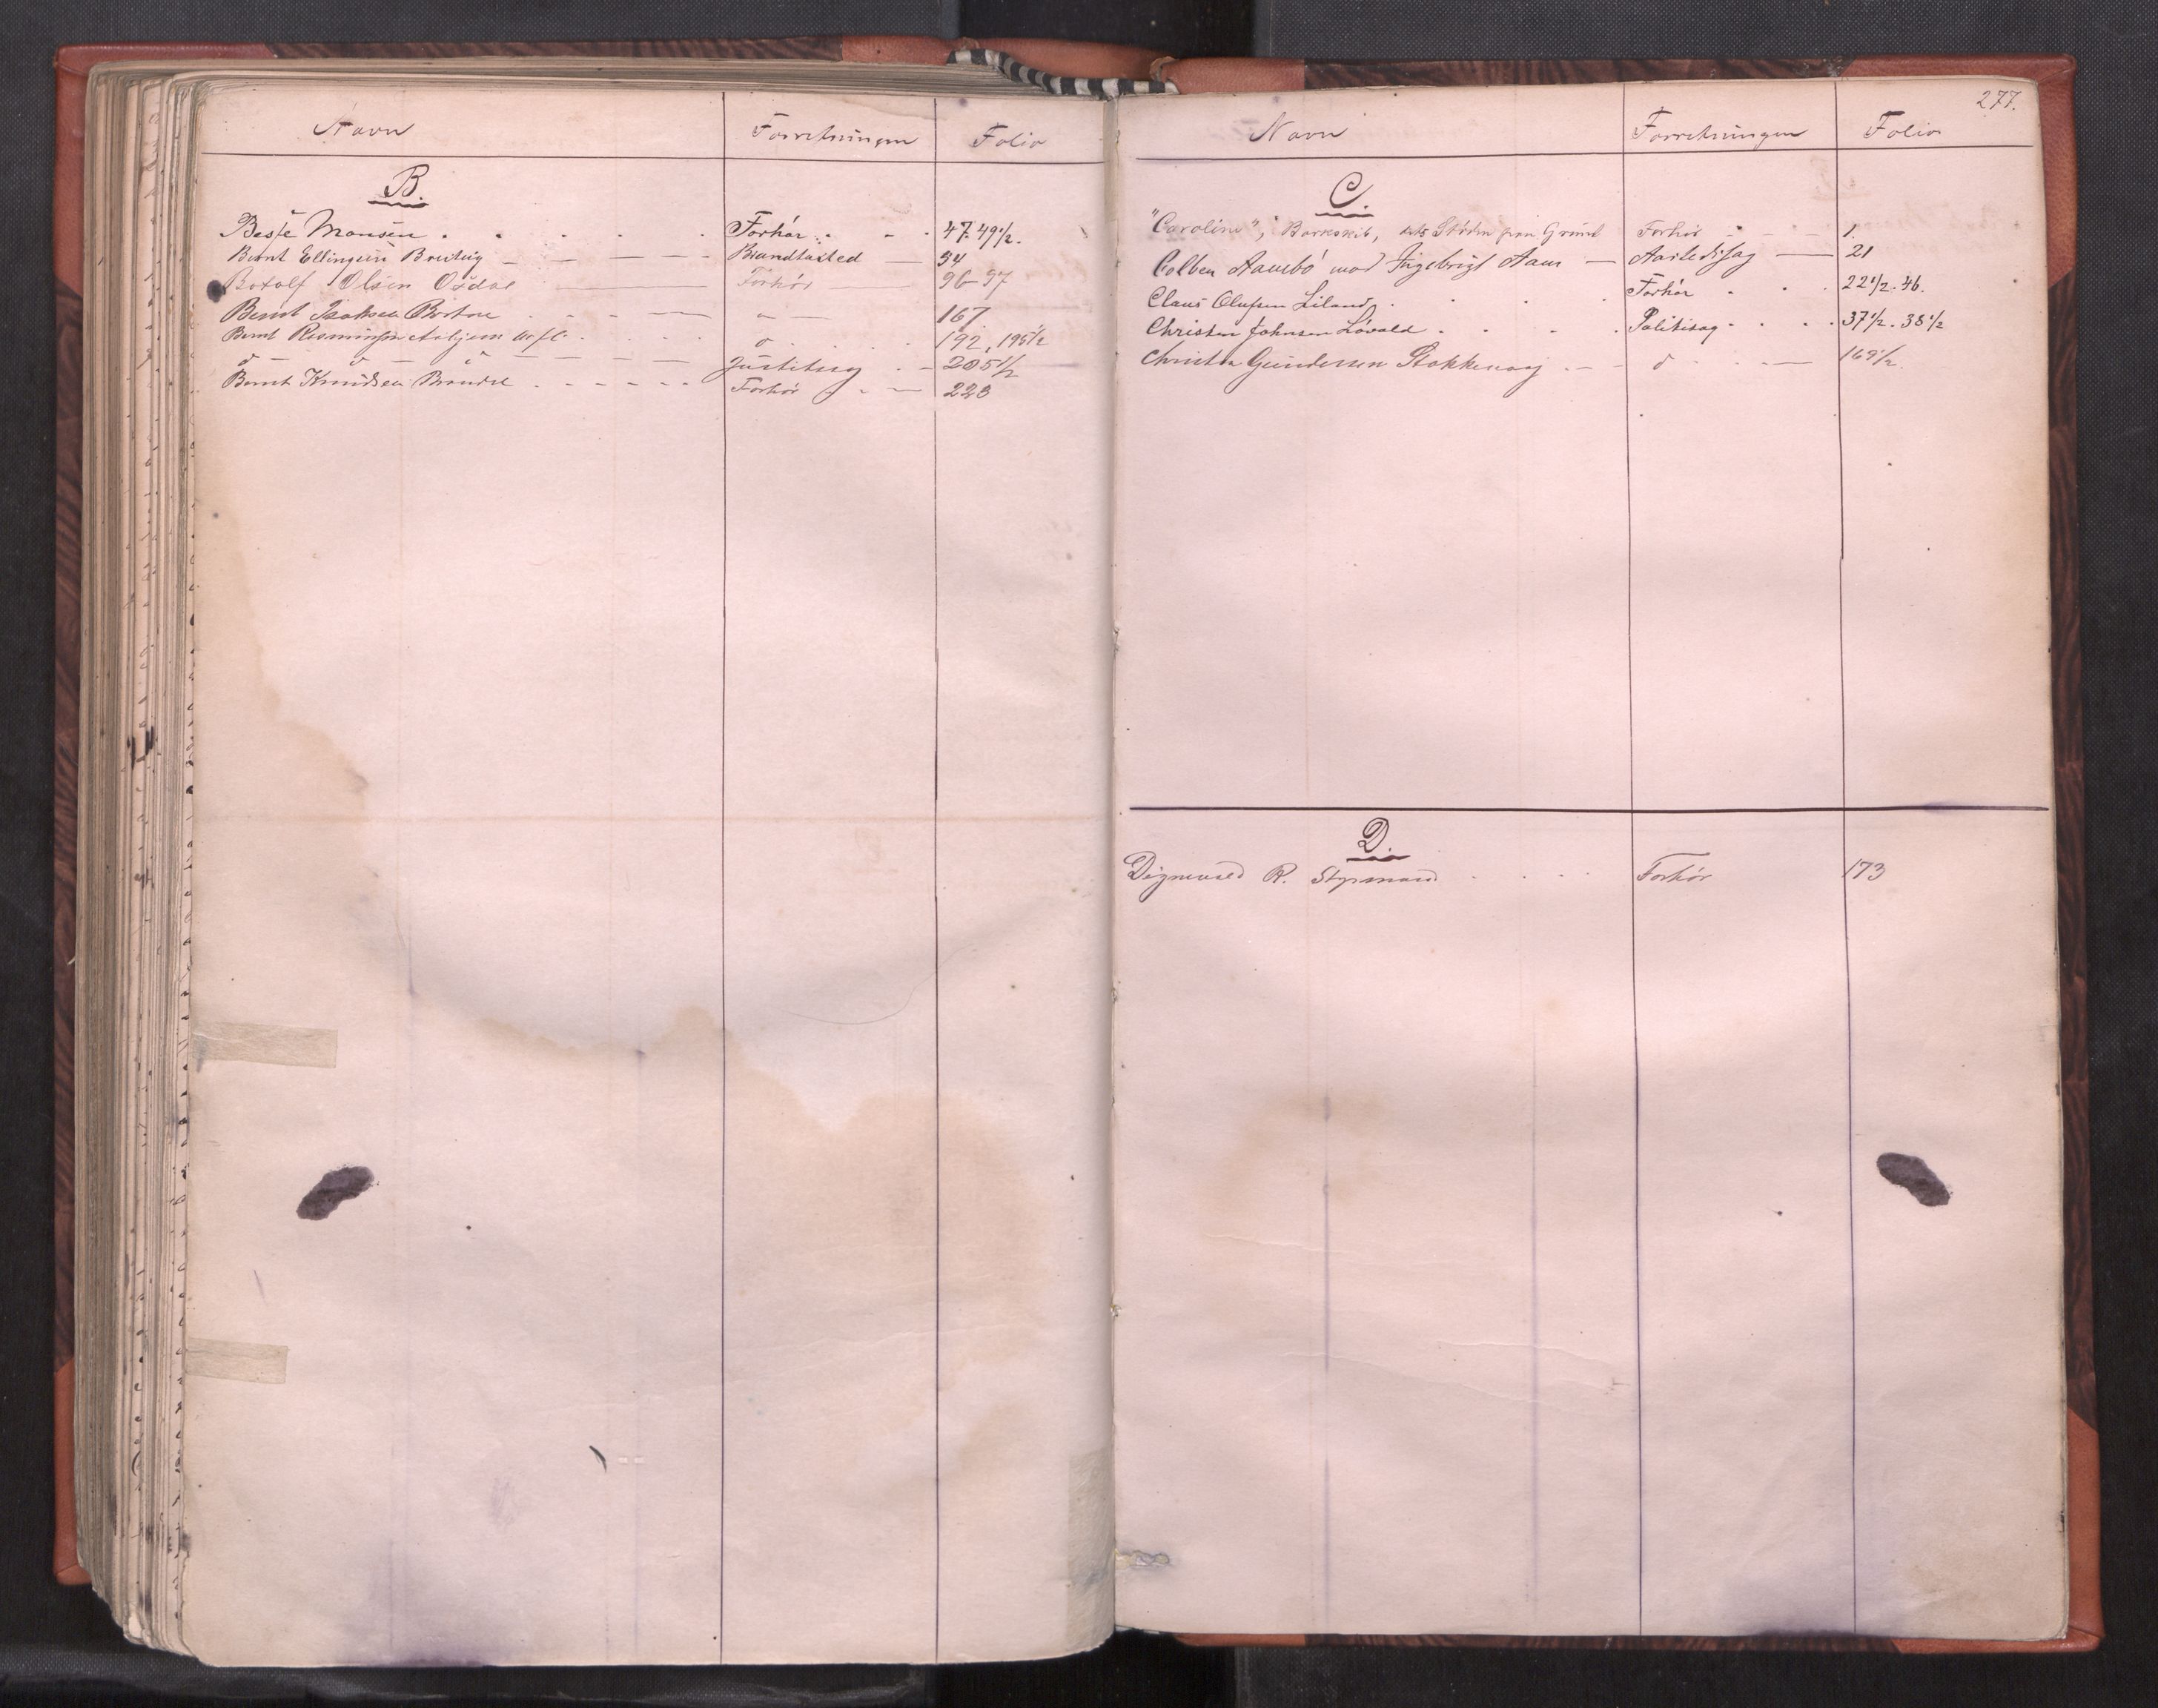 Navn Forretningen Folio
B.
Besse Monsen Forhör 47. 49 1/2.
Bernt Ellingsen Breivig Brandtaxted 54
Botolf Olsen Osdal Forhör 96-97
Bernt Isaksen 167
Bernt Rasmussen m. fl. d 192, 195 1/2
d d d Justitssag 205 1/2
Bernt Knudsen Brandal Forhör 228
277.
Navn Forretningen Folio
C.
"Caroline", Barkskib, Forhör 1.
Colben Aamebö mod Ingebrigt Aam Aastedssag 21
Claus Olufsen Liland Forhör 22 1/2. 46.
Christen Johnsen Lövold Politisag 37 1/2. 38 1/2
Christen Gundersen Stokkevaag d 169 1/2.
D.
R. Styrmand Forhör 173